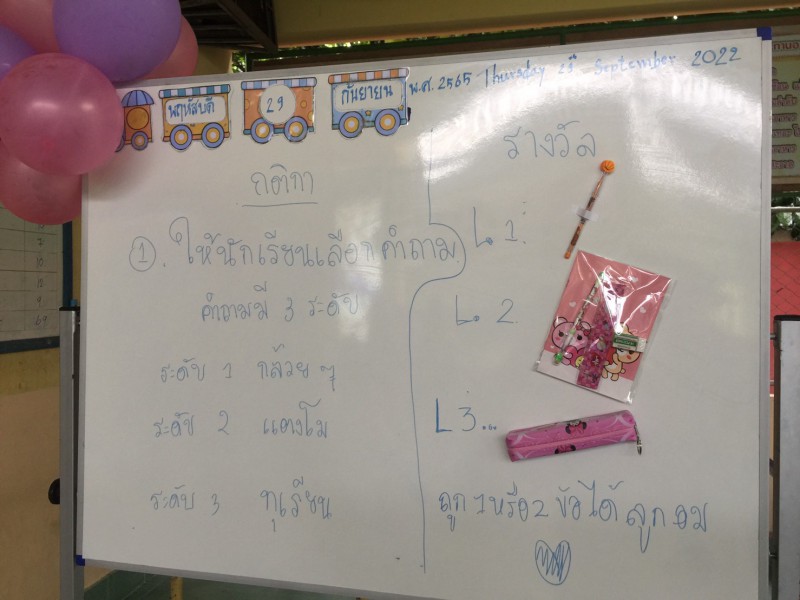 พฤหัสบดี 29 กันยายน พ.ศ. 2565 Thursday 29 September 2022
กติกา
①. ให้นักเรียนเลือกคำถาม
คำถามมี 3 ระดับ
ระดับ 1 กล้วย ๆ
ระดับ 2 แตงโม
ระดับ 3 ทุเรียน
รางวัล
L. 1.
L. 2.
L 3...
ถูก 1 หรือ 2 ข้อได้ ลูกอม